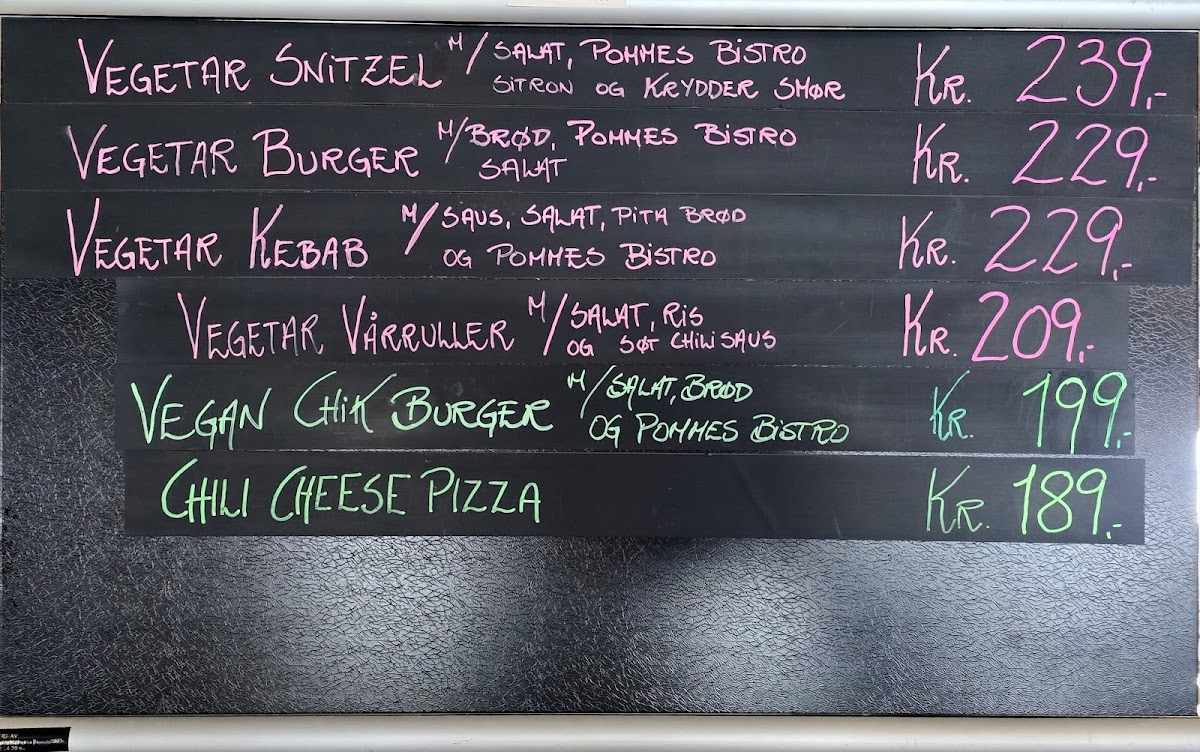 VEGETAR SNITZEL M/ SALAT, POMMES BISTRO KR. 239,-
SITRON OG KRYDDER SMØR
VEGETAR BURGER M/ BRØD, POMMES BISTRO KR. 229,-
SALAT
VEGETAR KEBAB M/ SAUS, SALAT, PITA BRØD KR. 229,-
OG POMMES BISTRO
VEGETAR VÅRRULLER M/ SALAT, RIS KR. 209,-
OG SØT CHILI SAUS
VEGAN CHIK BURGER M/ SALAT, BRØD KR. 199,-
OG POMMES BISTRO
CHILI CHEESE PIZZA KR. 189,-